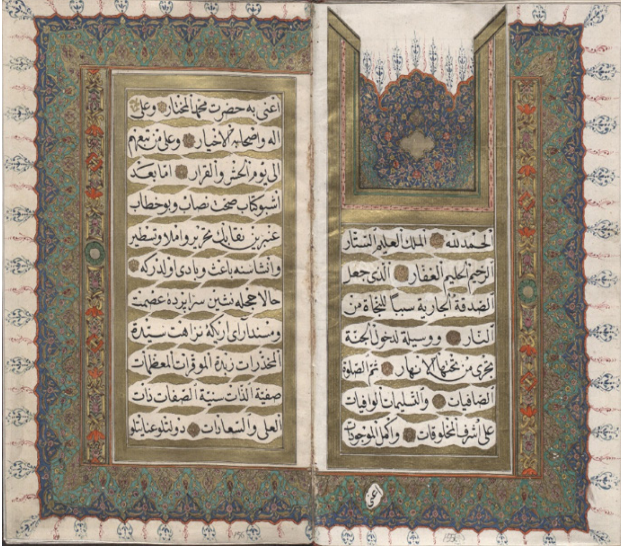 الحمد لله الملك العليم الستار
الرحيم الحليم الغفار الذى جعل
الصدقة الجارية سببا للنجاة من
النار ووسيلة لدخول الجنة
تجرى من تحتها الانهار ثم الصلوة
الصافيات والتسليمات الوافيات
على اشرف المخلوقات واكمل الموجودات
اعنى
اعنى به حضرت محمد المختار وعلى
اله واصحابه الاخيار وعلى من تبعهم
الى يوم الحشر والقرار اما بعد
اشبو كتاب صحت نصاب وبو خطاب
عنبرين نقابك تحرير واملا وتسطير
وانشاسنه باعث وبادى ولدركه
حالا حجله نشين سراپرده عصمت
ومسنداراى اريكه نزاهت سيدة
المخدرات زبدة الموقرات المعظمات
صفية الذات سنية الصفات ذات
العلى والسعادات دولتلو عنايتلو